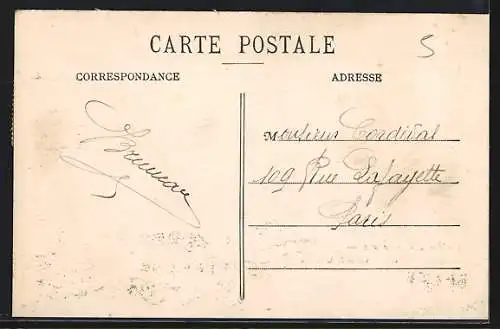 CARTE POSTALE
5
CORRESPONDANCE
ADRESSE
Bruneau
Monsieur Cordival
109 Rue Lafayette
Paris